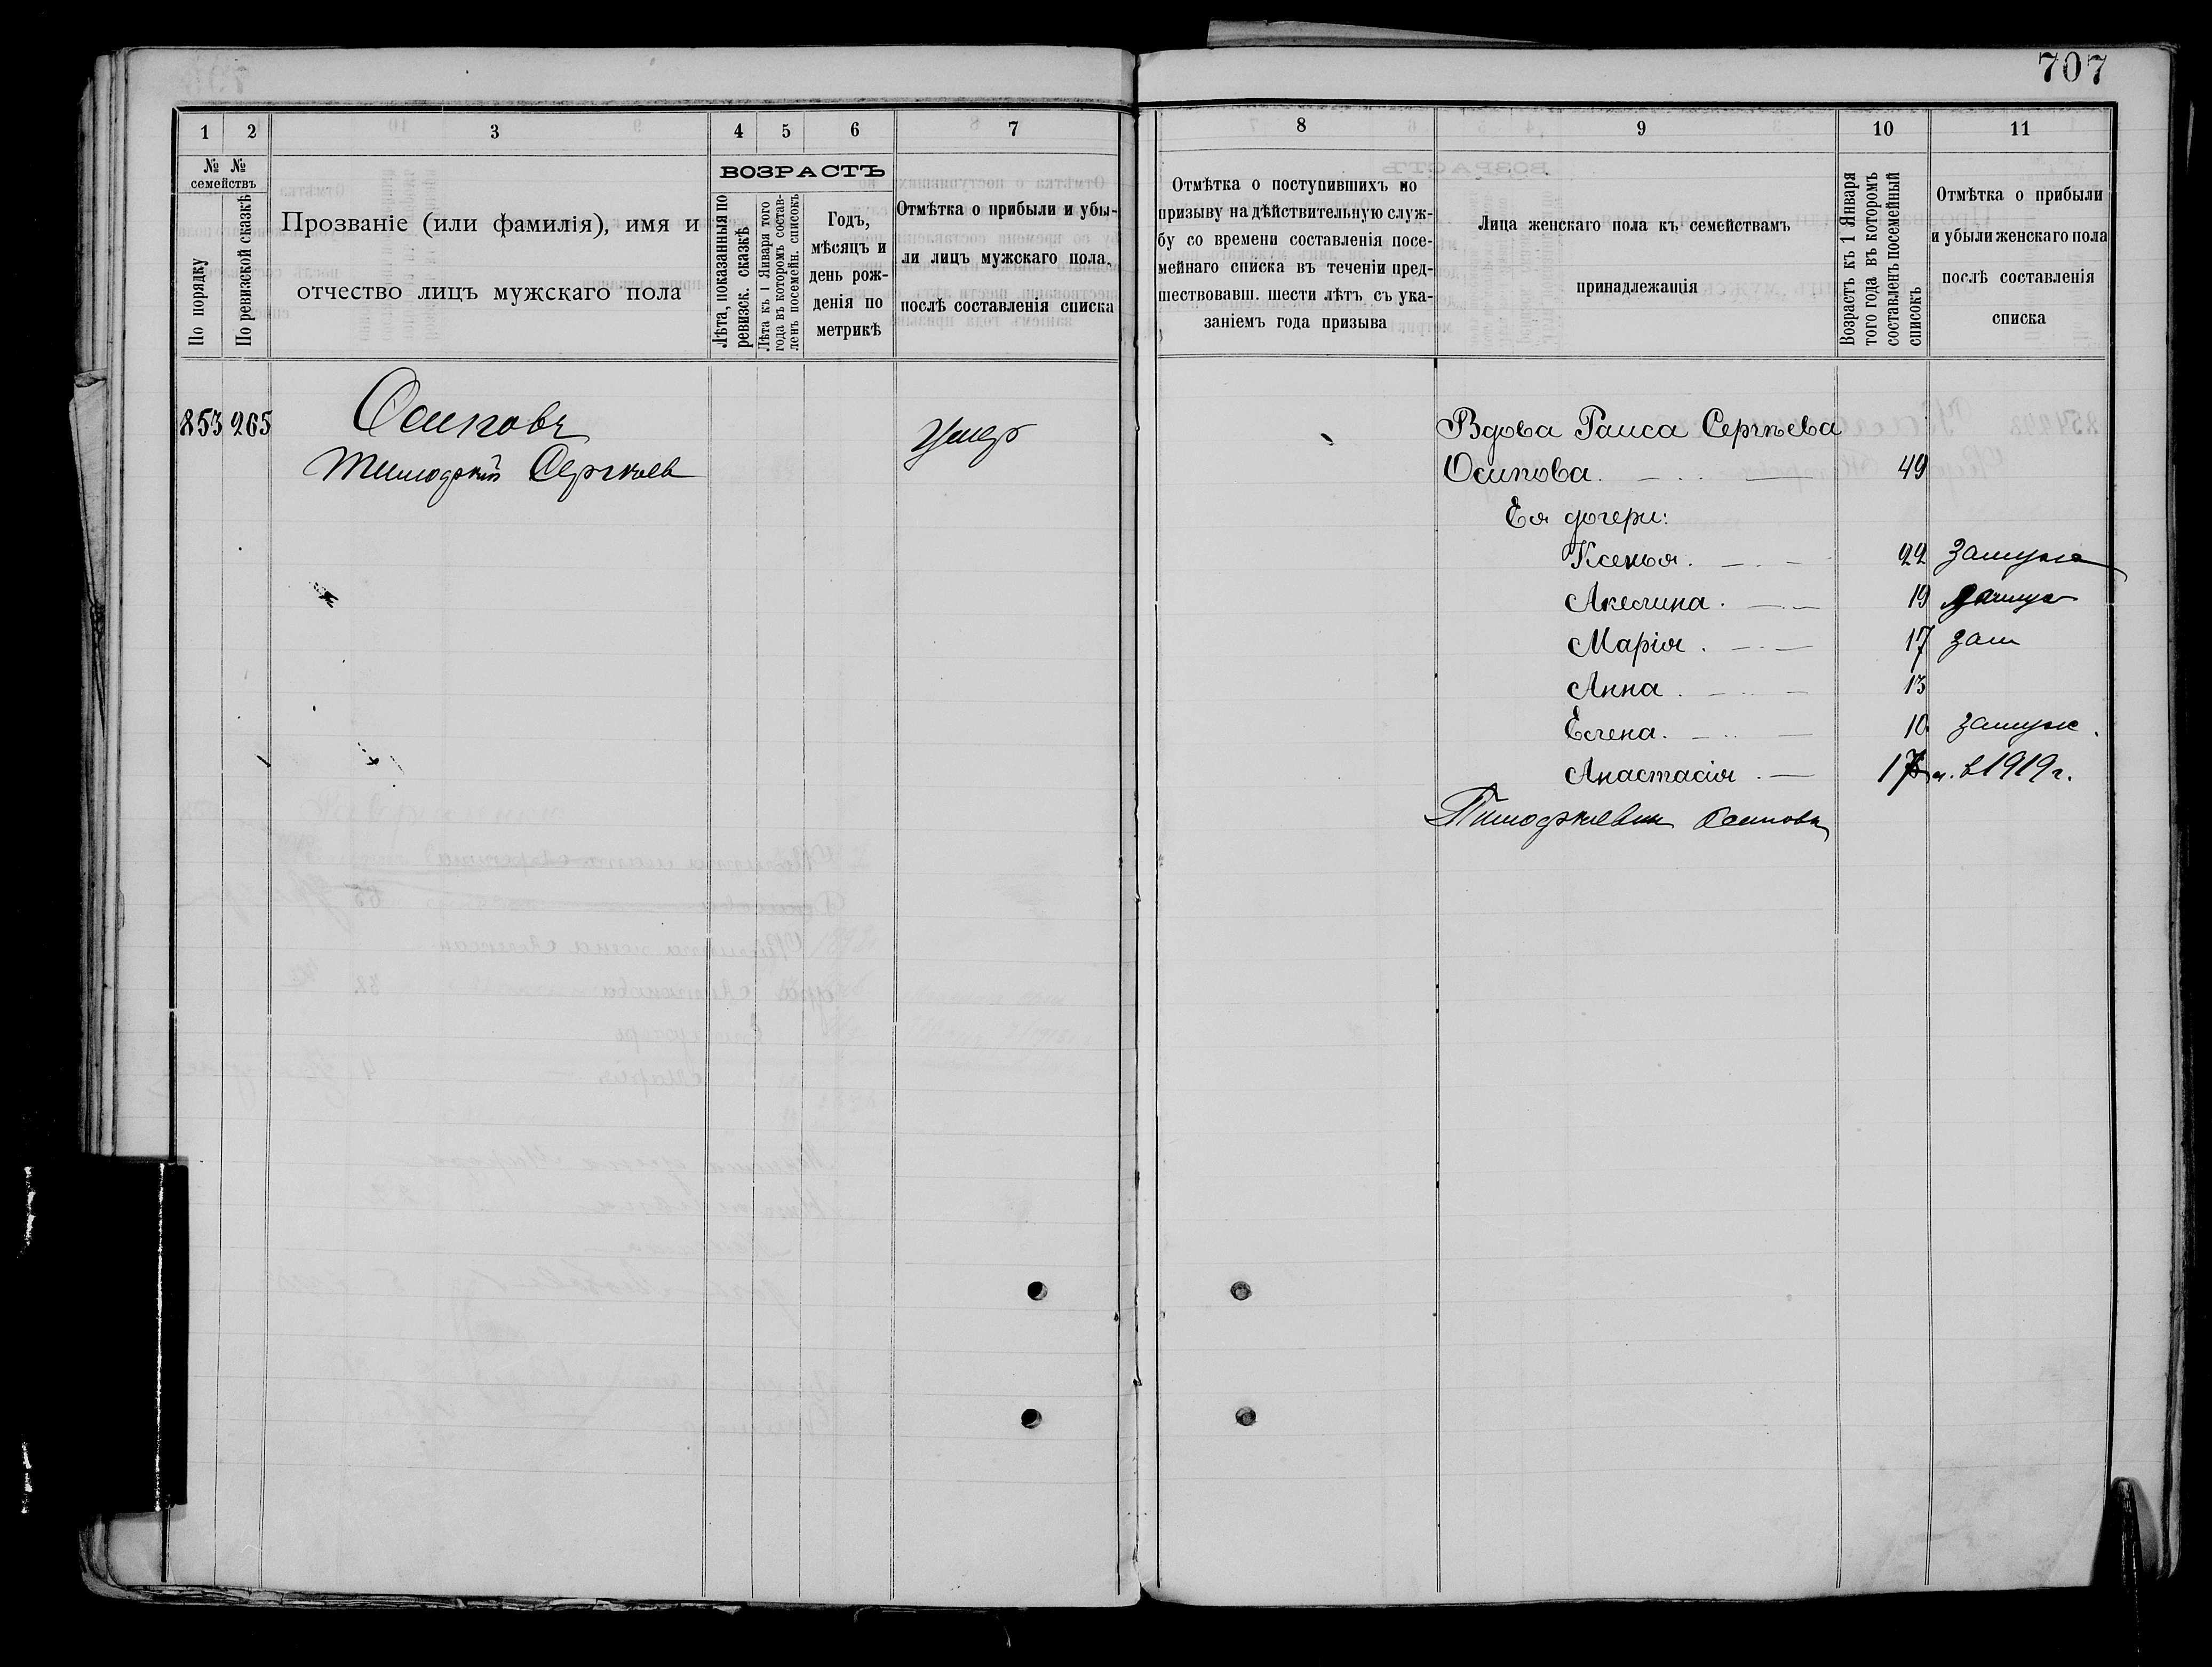 707
1 2 3 4 5 6 7
№ № семействъ
По порядку
По ревизской сказкѣ
Прозваніе (или фамилія), имя и
отчество лицъ мужскаго пола
ВОЗРАСТЪ
Лѣта, показанныя по
ревизск. сказкѣ
Лѣта къ 1 Января того
года въ которомъ состав-
ленъ посемейн. списокъ
Годъ,
мѣсяцъ и
день рож-
денія по
метрикѣ
Отмѣтка о прибыли и убы-
ли лицъ мужскаго пола,
послѣ составленія списка
853 265 Осиповъ
Тимофей Сергѣев
умер
8 9 10 11
Отмѣтка о поступившихъ по
призыву на дѣйствительную служ-
бу со времени составленія посе-
мейнаго списка въ теченіи пред-
шествовавш. шести лѣтъ съ ука-
заніемъ года призыва
Лица женскаго пола къ семействамъ
принадлежащія
Возрастъ къ 1 Января
того года въ которомъ
составленъ посемейный
списокъ
Отмѣтка о прибыли
и убыли женскаго пола
послѣ составленія
списка
Вдова Раиса Сергѣева
Осипова. 49
Ея дочери:
Ксенья. 22 замуж
Акелина. 19 замуж
Марія. 17 зам
Анна. 13
Елена. 10 замуж.
Анастасія. в 1919 г.
Тимофеевы Осиповы